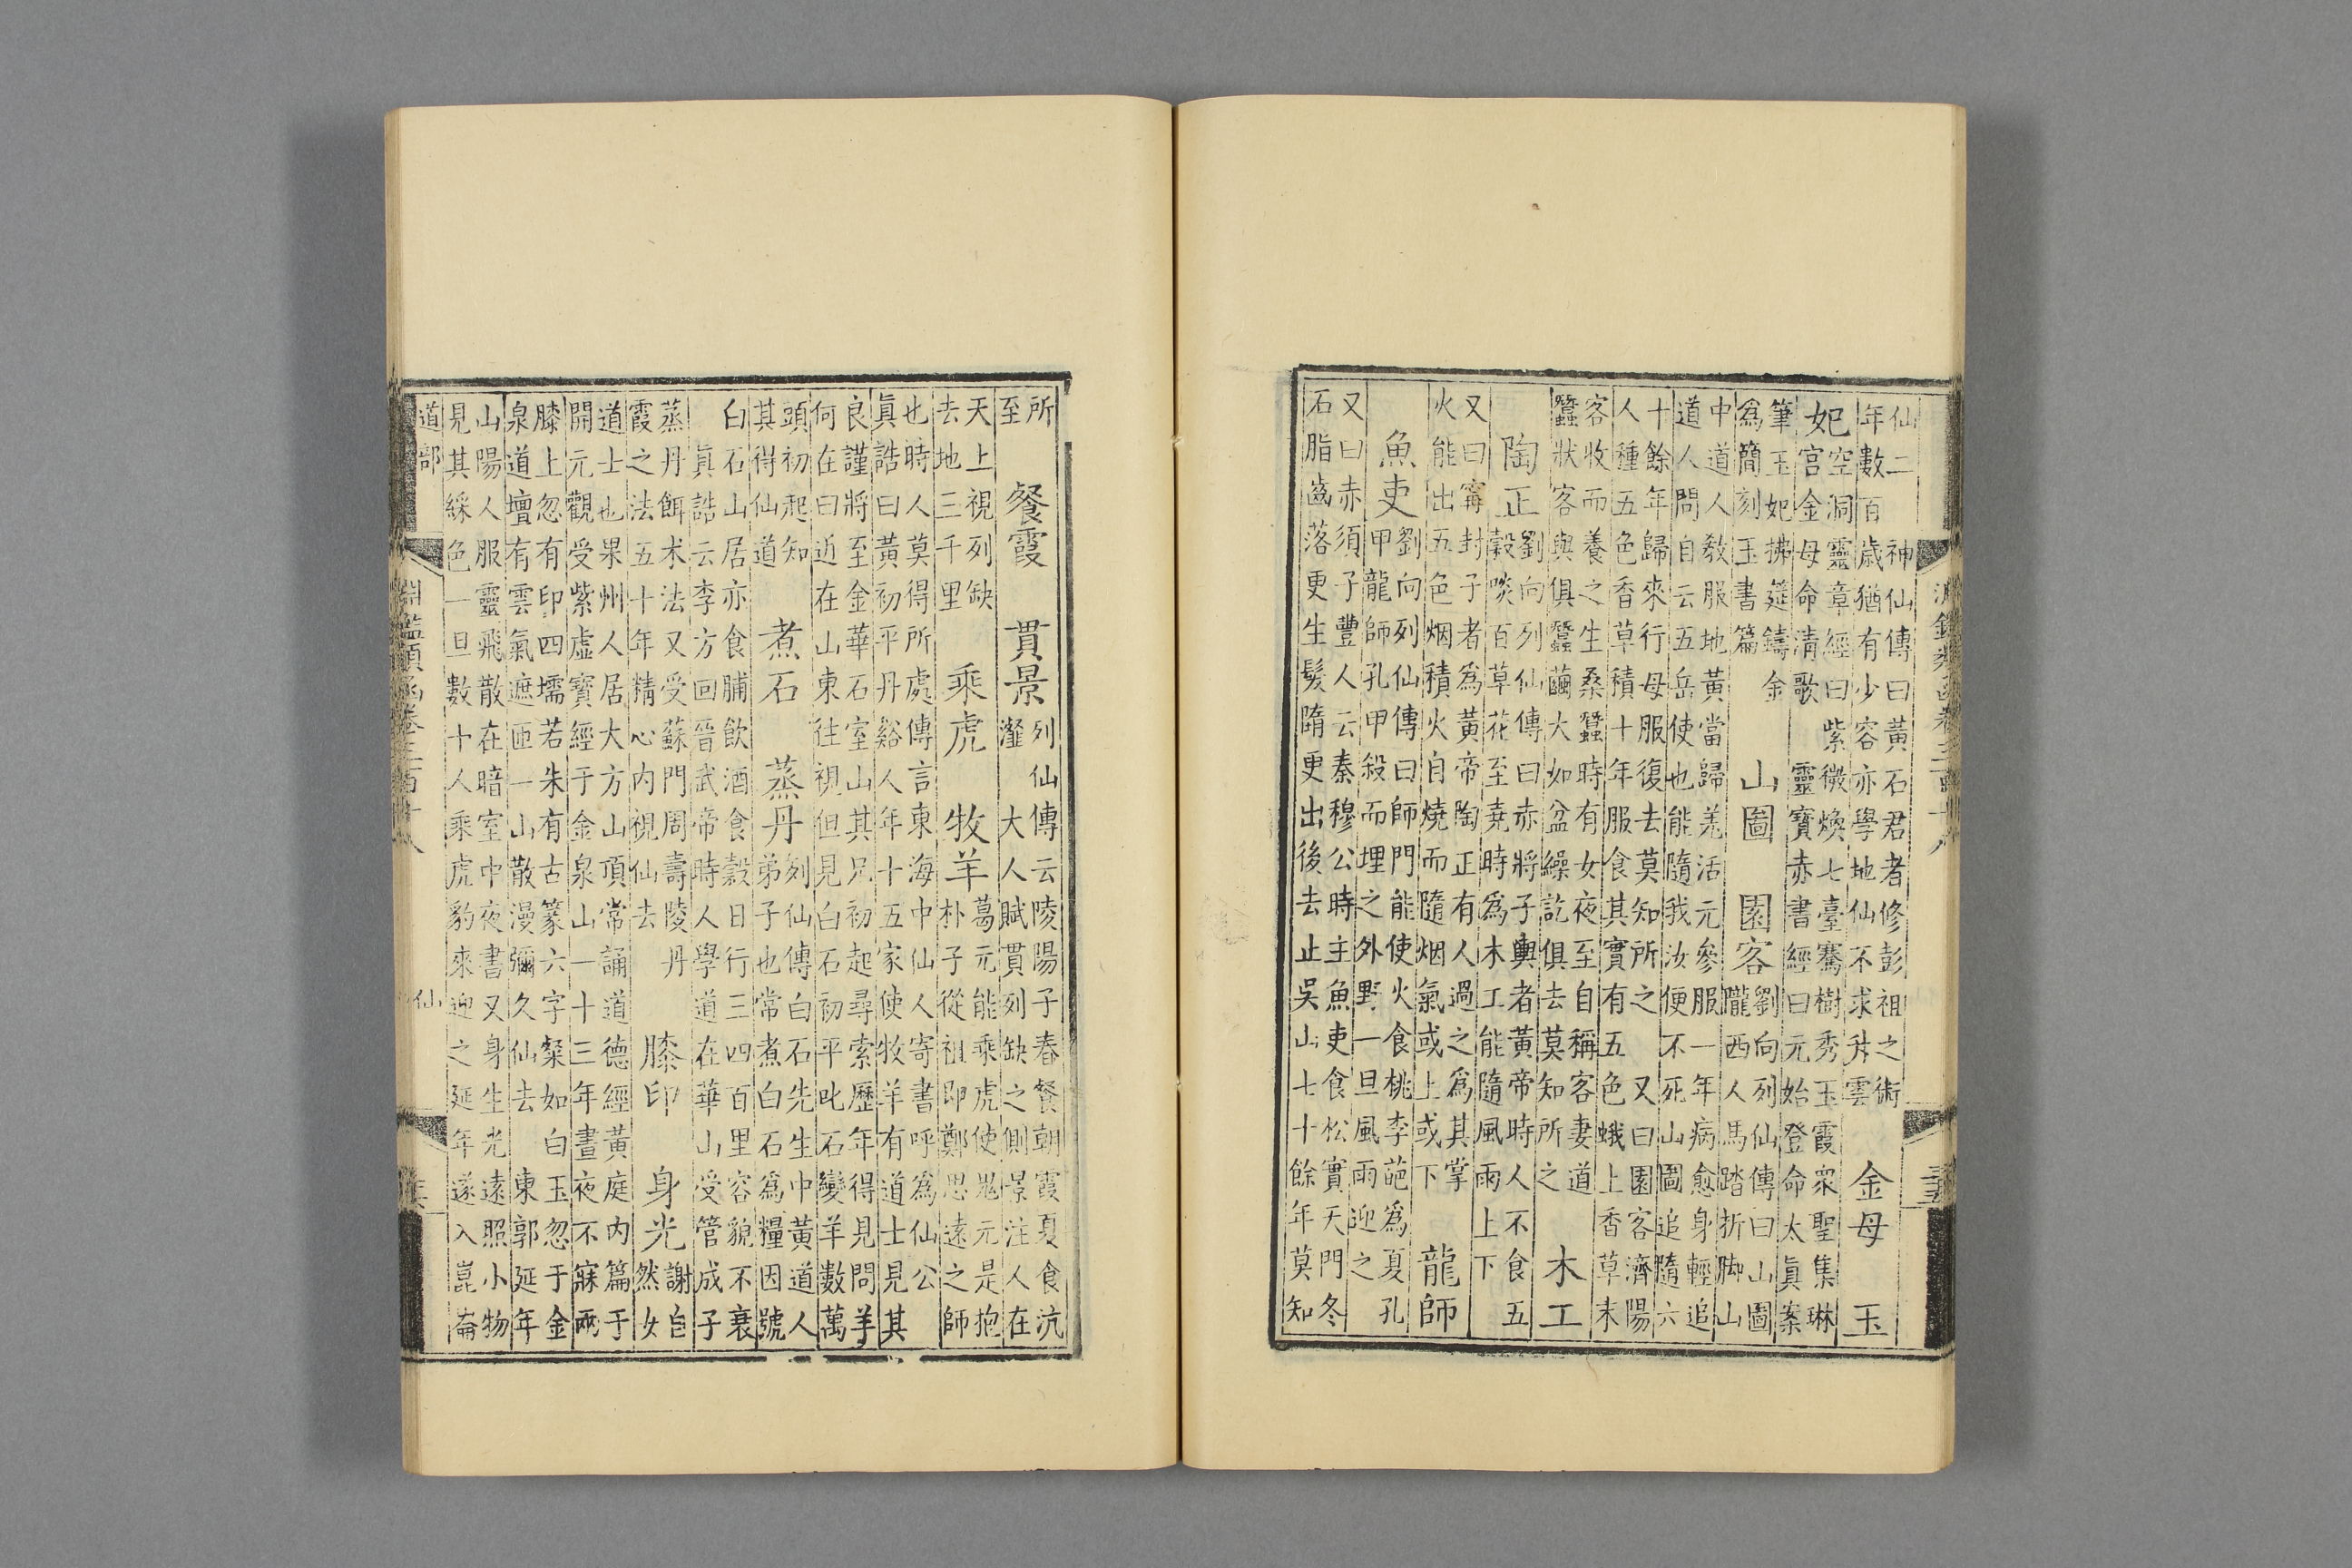 仙二　神仙傳曰黃石君者修彭祖之術
年數百歲猶有少容亦學地仙不求升雲
金母　玉
妃
空洞靈章經曰　紫微煥七臺騫樹秀玉霞衆聖集琳
宮金母命清歌　靈寶赤書經曰元始登命太眞案
筆玉妃拂筵鑄金
爲簡刻玉書篇
山圖　園客
劉向列仙傳曰山圖
隴西人馬踏折脚山
中道人敎服地黃當歸羌活元參服一年病愈身輕追
道人問自云五岳使也能隨我汝便不死山圖追隨六
十餘年歸來行母服復去莫知所之　又曰園客濟陽
人種五色香草積十年服食其實有五色蛾上香草末
客收而養之生桑蠶時有女夜至自稱客妻道
蠶狀客與俱蠶繭大如盆繰訖俱去莫知所之
木工
陶正
劉向列仙傳曰赤將子輿者黃帝時人不食五
穀啖百草花至堯時爲木工能隨風雨上下
又曰甯封子者爲黃帝陶正有人過之爲其掌
火能出五色烟積火自燒而隨烟氣或上或下
龍師
魚吏
劉向列仙傳曰師門能使火食桃李葩爲夏孔
甲龍師孔甲殺而埋之外野一旦風雨迎之
又曰赤須子豐人云秦穆公時主魚吏食松實天門冬
石脂齒落更生髮隋更出後去止吳山七十餘年莫知
所
至
餐霞　貫景
列仙傳云陵陽子春餐朝霞夏食沆
瀣　大人賦貫列缺之倒景注人在
天上視列缺
去地三千里
乘虎　牧羊
葛元能乘虎使鬼元是抱
朴子從祖即鄭思遠之師
也時人莫得所處傳言東海中仙人寄書呼爲仙公
眞誥曰黃初平丹谿人年十五家使牧羊有道士見其
良謹將至金華石室山其兄初起尋索歷年得見問羊
何在曰近在山東往視但見白石初平叱石變羊數萬
頭初起知
其得仙道
煮石　蒸丹
列仙傳白石先生中黃道人
弟子也常煮白石爲糧因號
白石山居亦食脯飲酒食穀日行三四百里容貌不衰
眞誥云李方回晉武帝時人學道在華山受管成子
蒸丹餌术法又受蘇門周壽陵丹
霞之法五十年精心内視仙去
膝印　身光
謝自
然女
道士也果州人居大方山頂常誦道德經黃庭内篇于
開元觀受紫虛寶經于金泉山一十三年晝夜不寐兩
膝上忽有印四壖若朱有古篆六字粲如白玉忽于金
泉道壇有雲氣遮匝一山散漫彌久仙去　東郭延年
山陽人服靈飛散在暗室中夜書又身生光遠照小物
見其綵色一旦數十人乘虎豹來迎之延年遂入崑崙
道部
淵鑑類函卷三百十八
仙